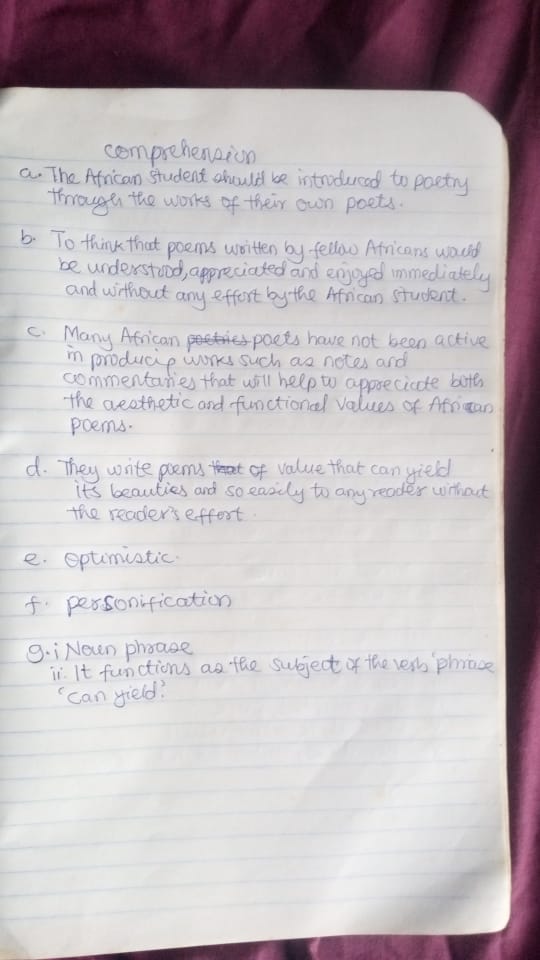 comprehension
a. The African student should be introduced to poetry
through the works of their own poets.
b. To think that poems written by fellow Africans would
be understood, appreciated and enjoyed immediately
and without any effort by the African student.
c. Many African poetries poets have not been active
in producing works such as notes and
commentaries that will help to appreciate both
the aesthetic and functional values of African
poems.
d. They write poems that of value that can yield
its beauties and so easily to any reader without
the reader's effort.
e. Optimistic.
f. personification
g. i Noun phrase
ii. It functions as the subject of the verb 'phrase
'can yield'.